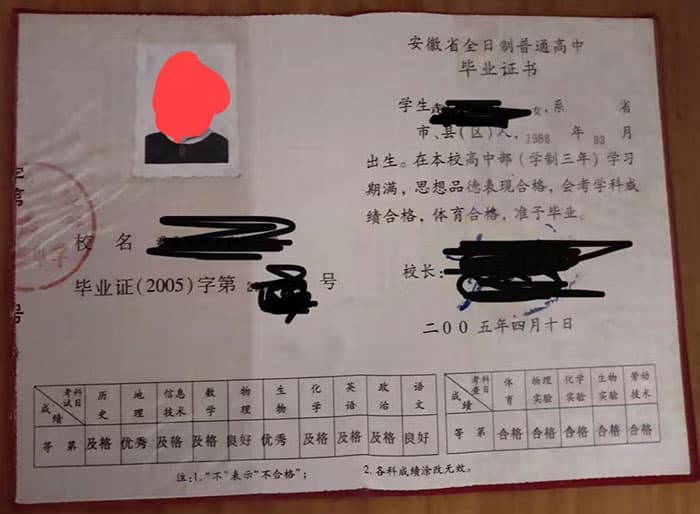 校 名
毕业证(2005)字第 号
安徽省全日制普通高中
毕业证书
学生 女,系 省
市、县(区)人,1986 年 03 月
出生。在本校高中部(学制三年)学习
期满,思想品德表现合格,会考学科成
绩合格,体育合格,准予毕业。
校长:
二〇〇五年四月十日
考试科目 成绩 历史 地理 信息技术 数学 物理 生物 化学 英语 政治 语文
等第 及格 优秀 及格 及格 良好 优秀 及格 及格 及格 良好
考查科目 成绩 体育 物理实验 化学实验 生物实验 劳动技术
等第 合格 合格 合格 合格 合格
注:1.“不”表示“不合格”; 2.各科成绩涂改无效。